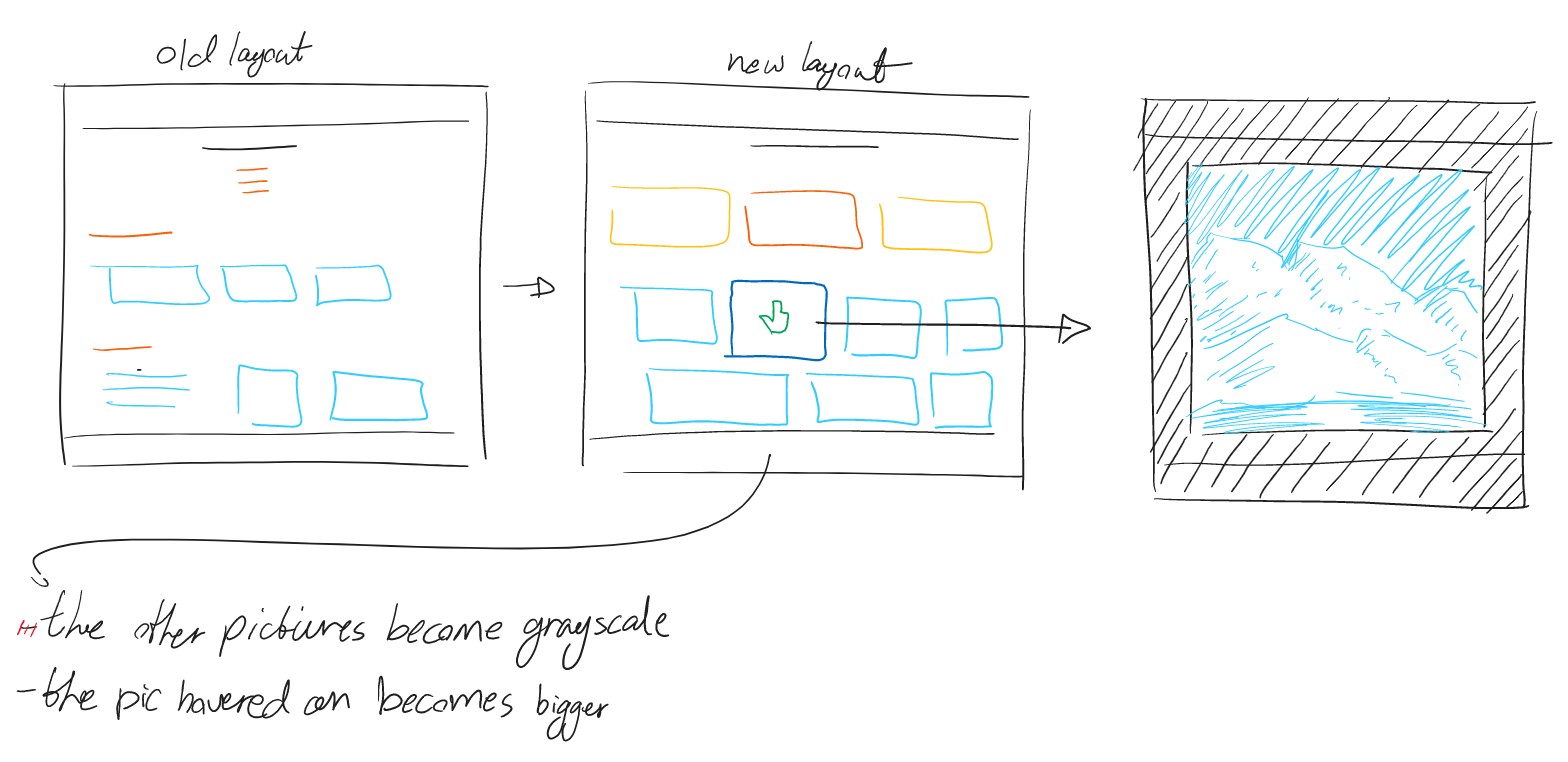 old layout
new layout
the other pictiures become grayscale
- the pic hovered on becomes bigger